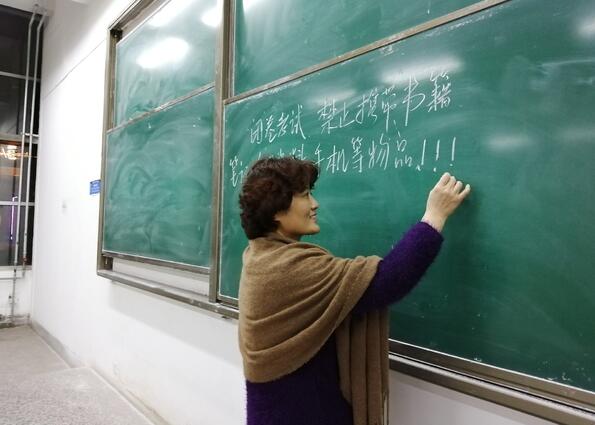 闭卷考试 禁止携带 书籍
笔 手机等物品!!!